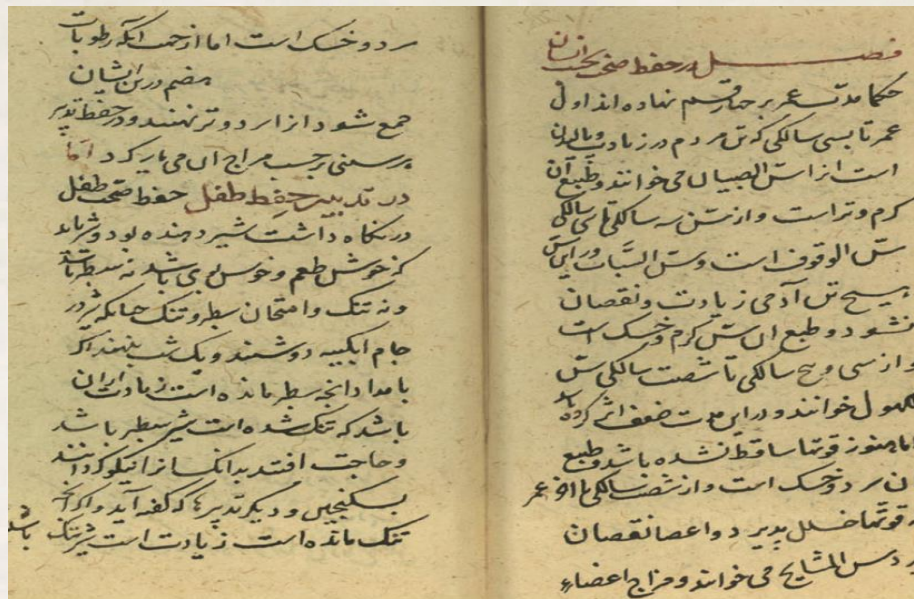 فصل در حفظ صحت انسان
حکما مدت عمر بر چهار قسم نهاده اند اول
عمر تا بسی سالکی که تن مردم در زیادت و بالیدن
است از اسن الصبیان می خوانند و طبع آن
کرم و تر است و از سن سه سالکی تا سی سالکی
سن الوقوف است و سن الشباب و در این سن
هیچ تن آدمی زیادت و نقصان
نشود و طبع این سن کرم و خسک است
و از سی و پنج سالکی تا شصت سالکی سن
خوانند و در این مدت ضعف اثر کرده باشد
اما هنوز قوتها ساقط نشده باشد و طبع
آن سرد و خسک است و از شصت سالکی تا اخر عمر
قوتها خلل پدیرد و اعضا نقصان
سن المشایخ می خوانند و مزاج اعضاء
سرد و خسک است اما از جهت آنکه رطوبات
هضم در تن ایشان
جمع شود از ار د و تر نهند و در حفظ تدبیر
هر سنی بر حسب مزاج ان می باید کرد اما
در تدبیر حفظ طفل حفظ صحت طفل
در نکاه داشت شیر دهنده بود و شیر باید
که خوش طعم و خوس بوی باشد نه سطبر باشد
و نه تنک و امتحان سطبر و تنک چنانکه شیر در
جام ابکینه دوشند و یک شب بنهند اکر
بامداد انجه سطبر مانده است زیادت از ان
باشد که تنک شده است شیر سطبر باشد
و حاجت افتد بدانک انرا نیکو کردانند
بسکنجبین و دیکر تدبیرها که کفته آید و اکر انجه
تنک مانده است زیادت است شیر تنک باشد